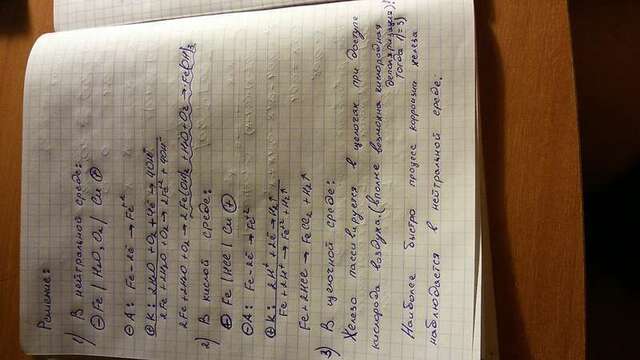 Решение:
1) В нейтральной среде:
⊖ Fe | H2O, O2 | Cu ⊕
⊖ A: Fe - 2ē → Fe+2
⊕ K: 2H2O + O2 + 4ē → 4OH-
2Fe + 2H2O + O2 → 2Fe+2 + 4OH-
2Fe + 2H2O + O2 → 2Fe(OH)2 + H2O + O2 → Fe(OH)3
2) В кислой среде:
⊖ Fe | HCl | Cu ⊕
⊖ A: Fe - 2ē → Fe+2
⊕ K: 2H+ + 2ē → H2↑
Fe + 2H+ → Fe+2 + H2↑
Fe + 2HCl → FeCl2 + H2↑
3) В щелочной среде:
Железо пассивируется в щелочах при доступе
кислорода воздуха. (вполне возможна кислородная
деполяризация)!
Тогда n=3)
Наиболее быстро процесс коррозии железа
наблюдается в нейтральной среде.